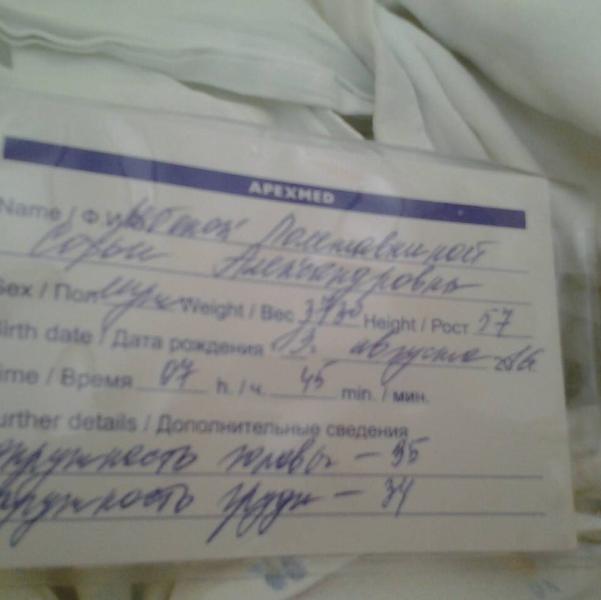 APEXMED
Name / Ф.И. Ребенок
Софьи Александровны
Sex / Пол муж Weight / Вес 3730 Height / Рост 57
Birth date / Дата рождения 3. августа
Time / Время 07 h. / ч. 45 min. / мин.
Further details / Дополнительные сведения
окружность головы – 35
окружность груди – 34